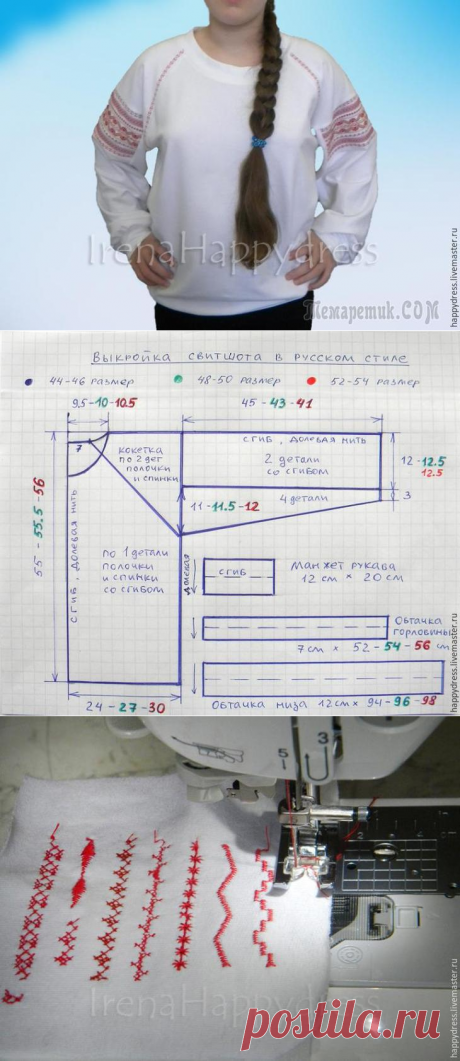 IrenaHappydress
Темаретик.COM
happydress.livemaster.ru
Выкройка свитшота в русском стиле
44-46 размер
48-50 размер
52-54 размер
9.5-10-10.5
45 - 43 - 41
7
кокетка
по 2 дет
полочки
и спинки
сгиб, долевая нить
2 детали
со сгибом
12 - 12.5
12.5
3
4 детали
11 - 11.5 - 12
55 - 55.5 - 56
сгиб, долевая нить
по 1 детали
полочки
и спинки
со сгибом
долевая
сгиб
Манжет рукава
12 см × 20 см
Обтачка
горловины
7 см × 52 - 54 - 56 см
24 - 27 - 30
Обтачка низа 12 см × 94 - 96 - 98
happydress.livemaster.ru
5
3
IrenaHappydress
happydress.livemaster.ru
postila.ru